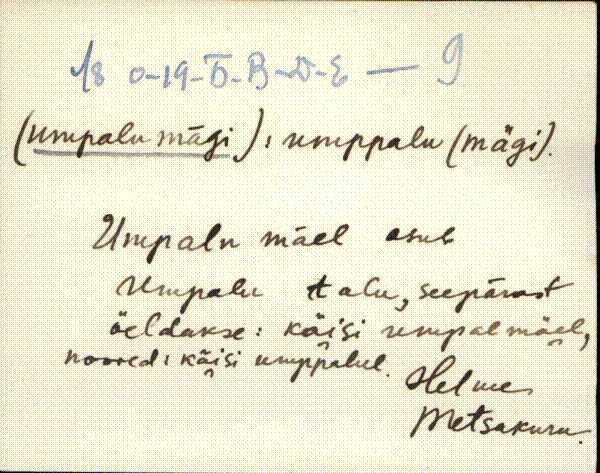 18 0-19-Б-В-Д-Е — 9
(umpalu mägi): umppalu (mägi).
Umpalu mäel asub
Umpalu talu, seepärast
öeldakse: käisi umpalmäel,
noored: käisi umppalul.
Helme
Metsakuru.